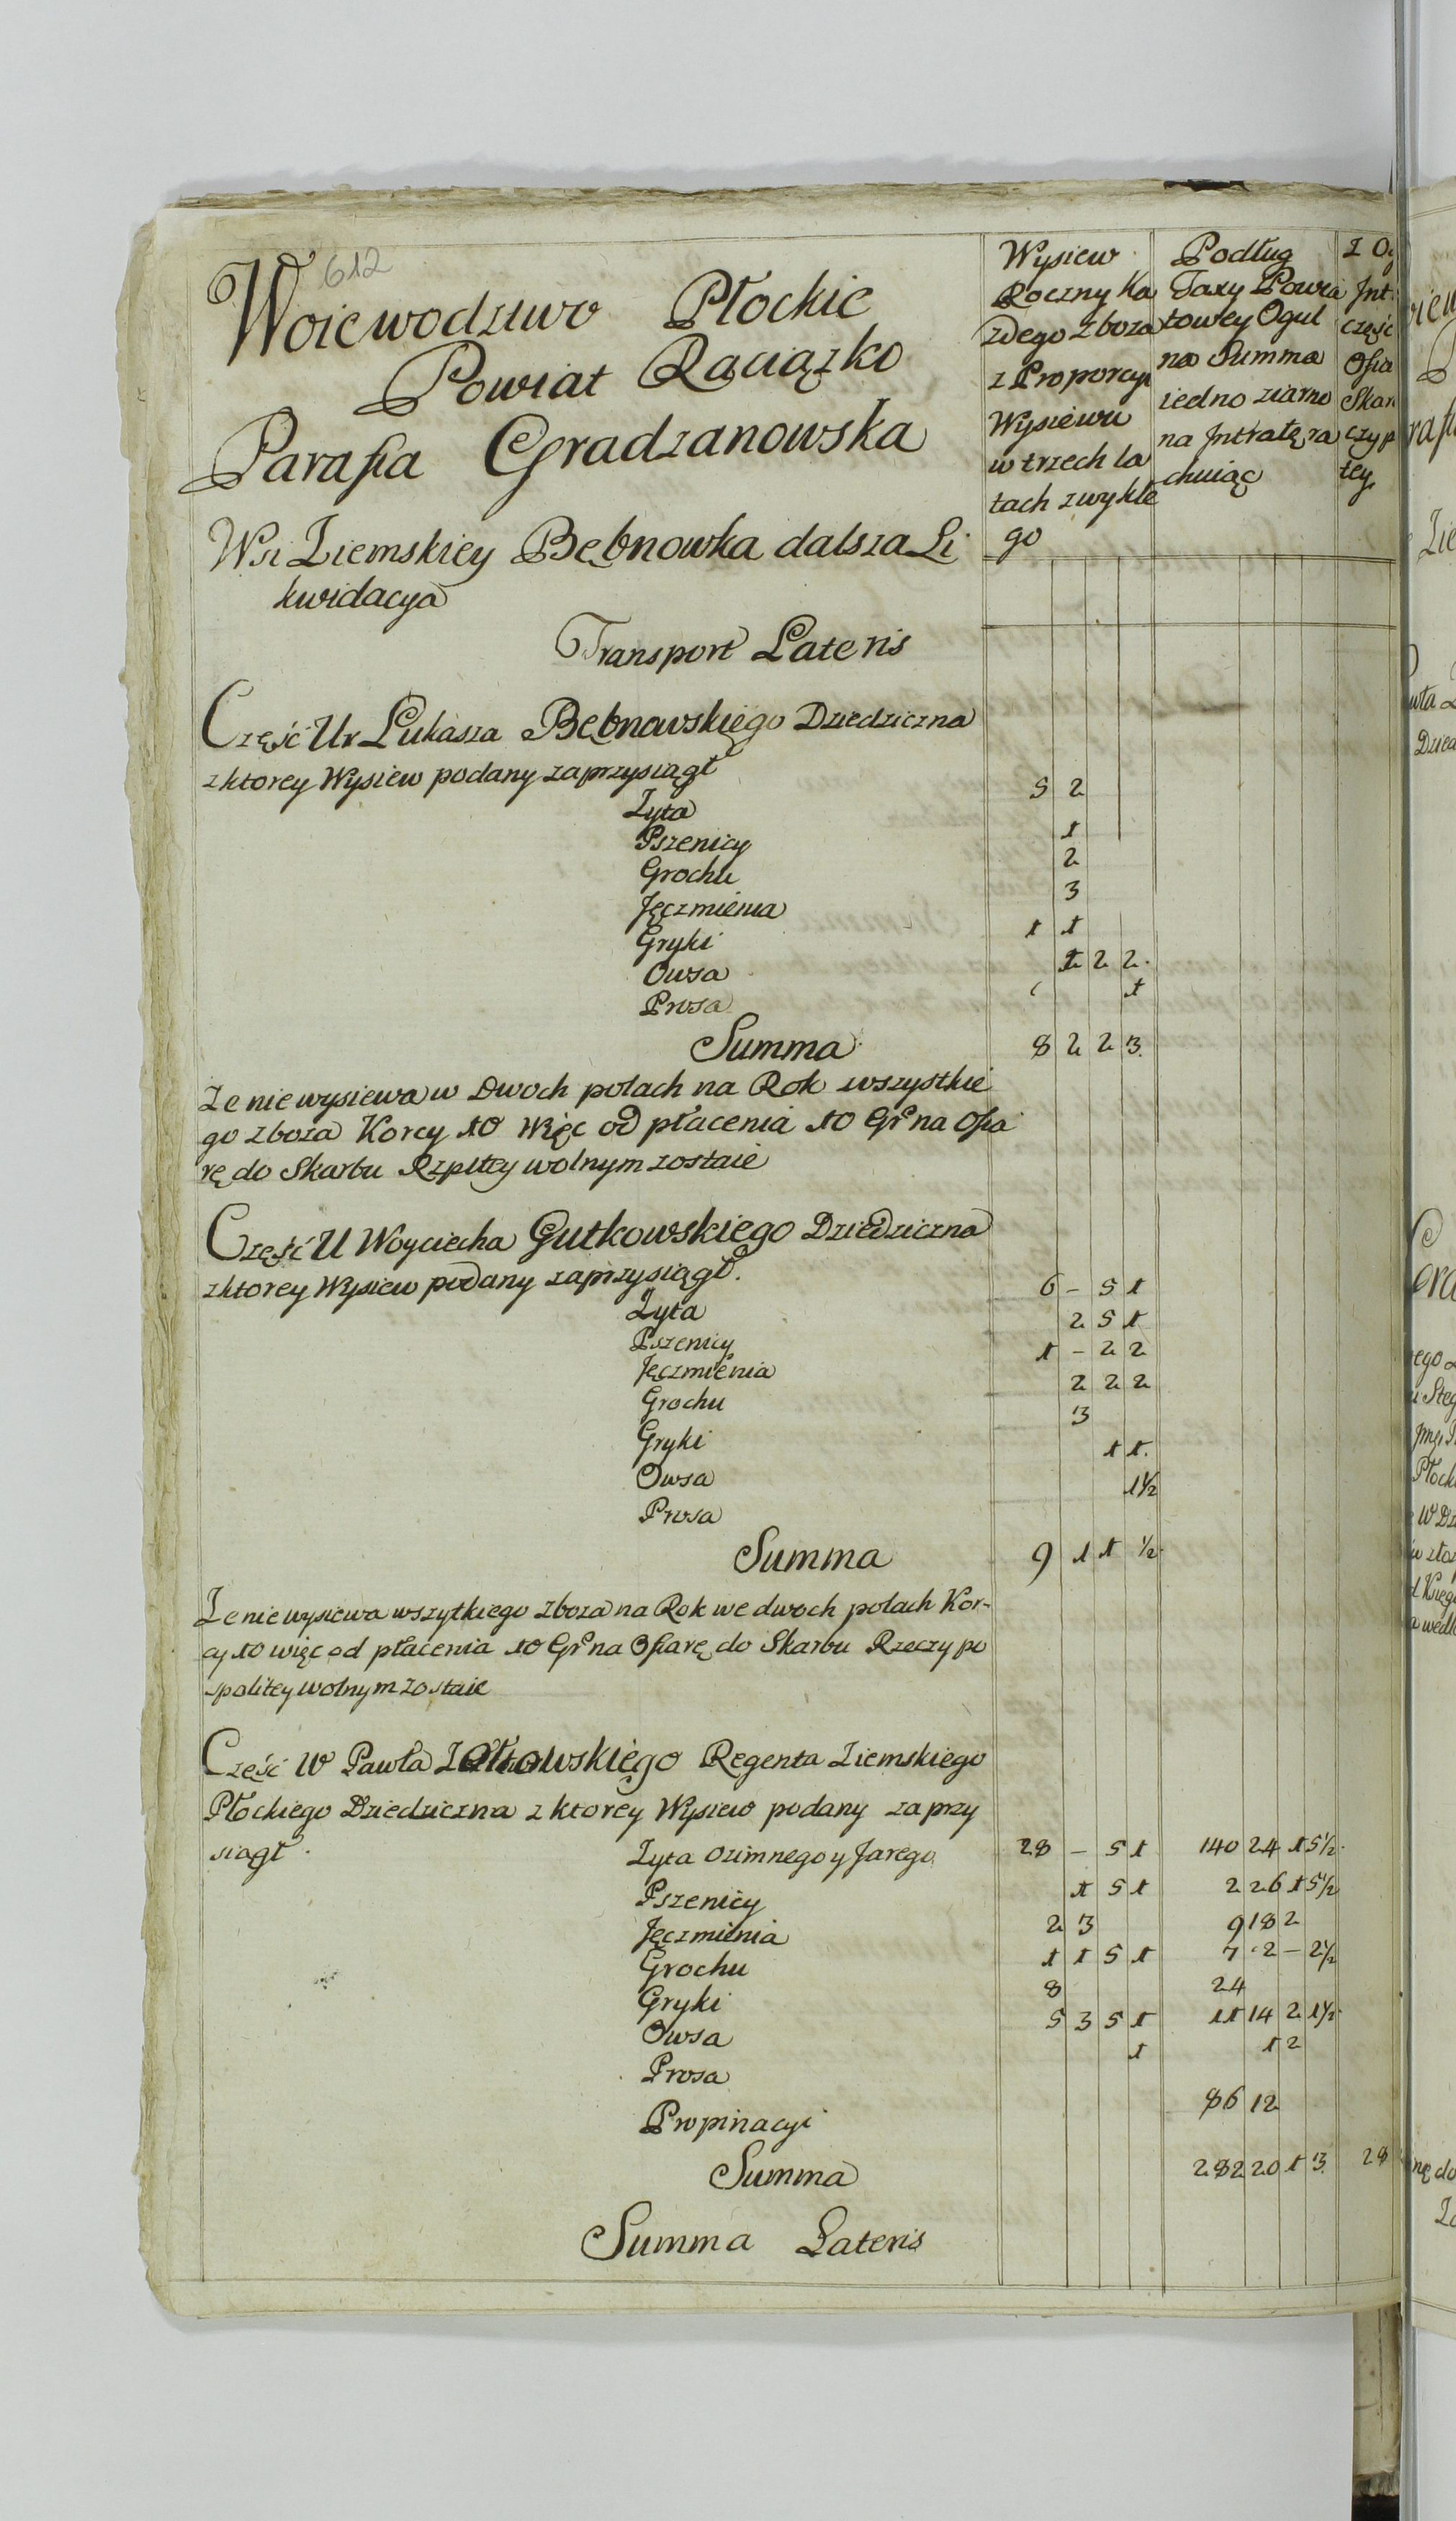 612
Woiewodztwo Płockie
Powiat Raciązko
Parafia Gradzanowska
Wsi Ziemskiey Bębnowka dalsza Li
kwidacya
Wysiew
Roczny Ka
zdego Zboza
z Proporcyi
Wysiewu
w trzech la
tach zwykle
go
Podług
Taxy Powia
towey Ogul
na Summa
iedno ziarno
na Jntratę ra
chuiąc
Transport Lateris
Część Ur Łukasza Bębnowskiego Dziedziczna
z ktorey Wysiew podany zaprzysiągł
Zyta 5 2
Pszenicy 1
Grochu 2
Jęczmienia 3
Gryki 1 1
Owsa 2 2
Prosa 1
Summa 8 2 2 3
Ze nie wysiewa w Dwoch polach na Rok wszystkie
go zboza Korcy 10 Więc od płacenia 10 Gr na Ofia
rę do Skarbu Rzpltey wolnym zostaie
Część U Woyciecha Gutkowskiego Dziedziczna
z ktorey Wysiew podany zaprzysiągł.
Zyta 6 – 5 1
Pszenicy 2 5 1
Jęczmienia 1 – 2 2
Grochu 2 2 2
Gryki 3
Owsa 1 1
Prosa 1½
Summa 9 1 1 ½
Ze nie wysiewa wszytkiego zboza na Rok we dwoch polach Kor-
cy 10 więc od płacenia 10 Gr na Ofiarę do Skarbu Rzeczy po
spolitey wolnym zostaie
Część W Pawła Regenta Ziemskiego
Płockiego Dziedziczna z ktorey Wysiew podany zaprzy
siągł.
Zyta ozimnego y Jarego 28 – 5 1 140 24 1 5½
Pszenicy 1 5 1 2 26 1 5½
Jęczmienia 2 3 9 18 2
Grochu 1 1 5 1 7 2 – 2½
Gryki 8 24
Owsa 5 3 5 1 11 14 2 1½
Prosa 1 1 2
Propinacyi 86 12
Summa 282 20 1 3 28
Summa Lateris